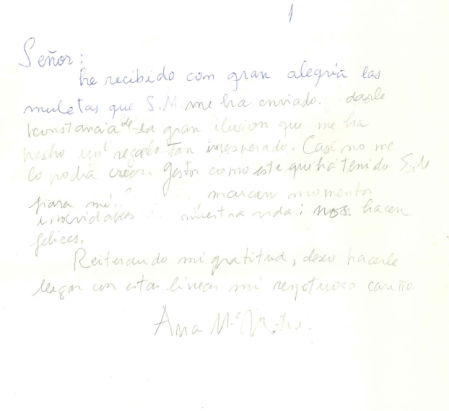 1
Señor:
he recibido con gran alegria las
muletas que S.M me ha enviado. darle
constancia de la gran ilusion que me ha
hecho un regalo tan inesperado. Casi no me
lo podia creer. Gestos como este que ha tenido S.M
para mi marcan momentos
inolvidables nuestra vida i nos hacen
felices.
Reiterando mi gratitud, deseo hacerle
llegar con estas lineas mi respetuoso cariño
Ana Mª